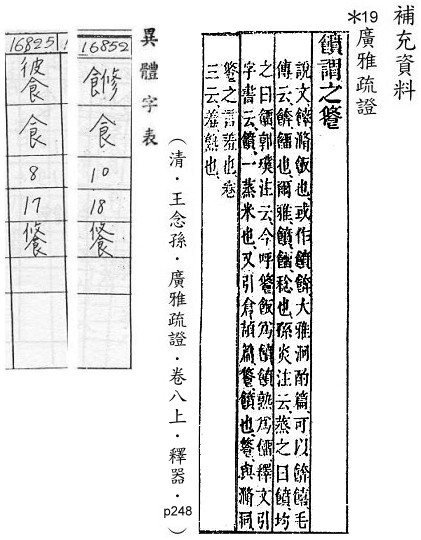 補充資料
*19
廣雅疏證
饙謂之
說文餴滫飯也或作饙餴大雅泂酌篇可以餴饎毛
傳云餴餾也爾雅饙餾稔也孫炎注云蒸之曰饙均
之曰餾郭璞注云今呼飯爲饙饙熟爲餾釋文引
字書云饙一蒸米也又引倉頡篇饙也與滫同
之言羞也卷
三云羞熟也
（清．王念孫．廣雅疏證．卷八上．釋器．p248）
異體字表
16852
食
10
18
16825
食
8
17